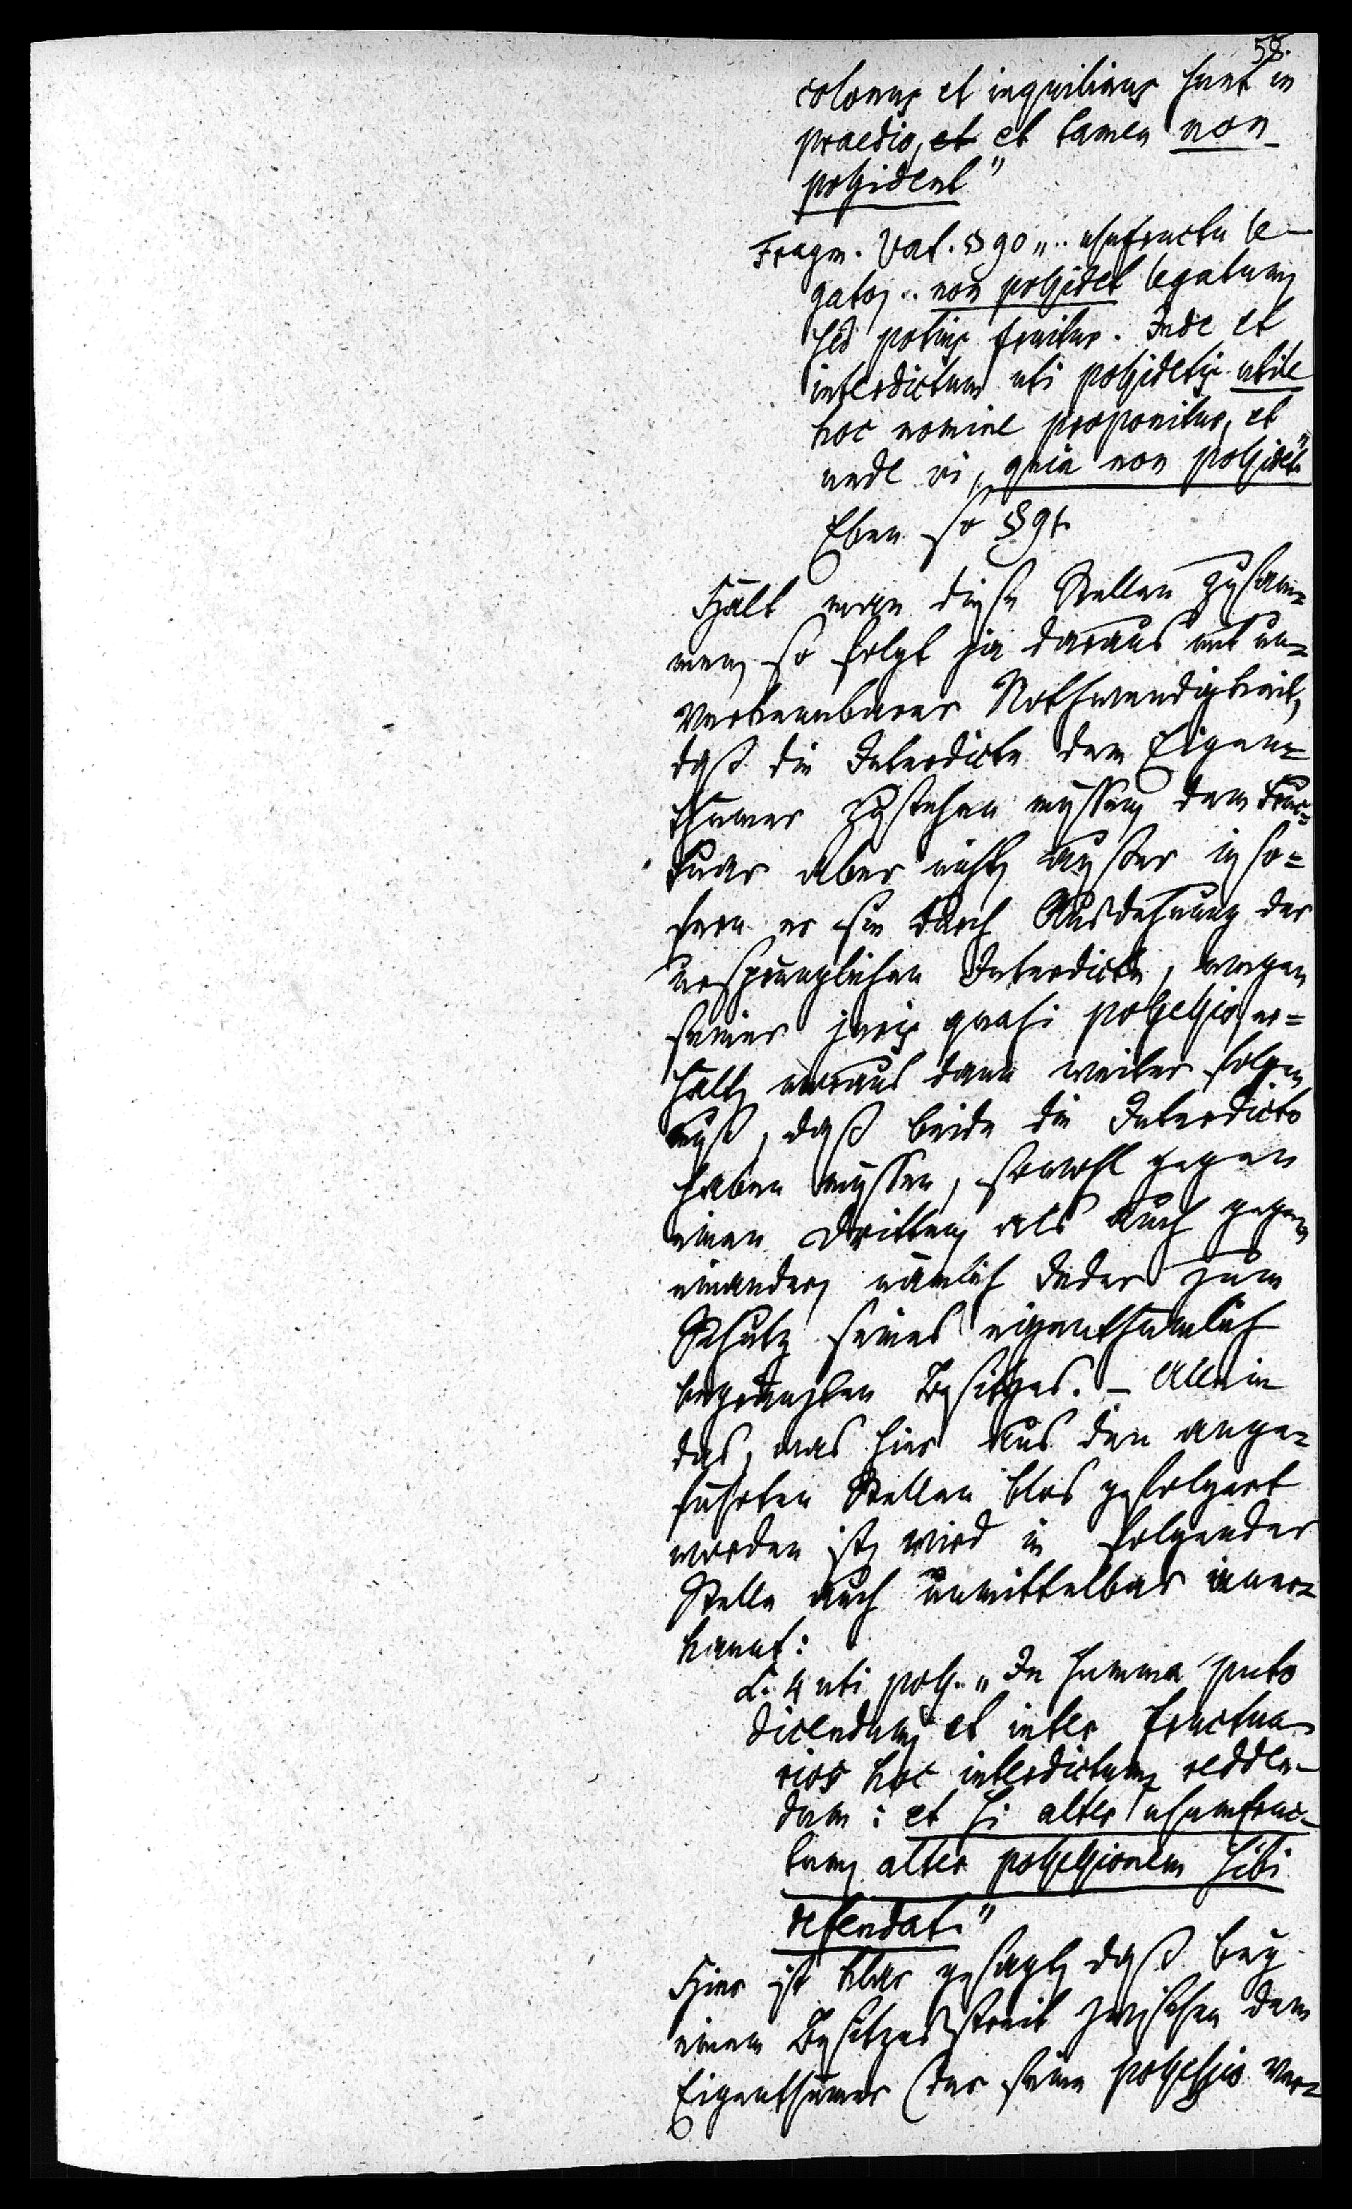 58.
colonus et inquilinus sunt in
praedio, et et tamen non
possident"
Fragm. Vat. § 90 „.. usufructu le-
gato, .. non possidet legatum,
sed potius fruitur. Inde et
interdictum uti possidetis utile
hoc nomine proponitur, et
unde vi, quia non possidet"
Eben so § 91.
Hält man diese Stellen zusam=
men, so folgt ja daraus mit un=
verkennbarer Nothwendigkeit,
daß die Interdicte dem Eigen=
thümer zustehen müssen, dem Fruc=
tuar aber nicht, außer in so=
fern er sie durch Ausdehnung der
ursprünglichen Interdicte, wegen
seiner juris quasi possessio, er=
hält, woraus dann weiter folgen
muß, daß beide die Interdicte
haben müssen, sowohl gegen
einen Dritten, als auch gegen
einander, nämlich Jeder zum
Schutz seines eigenthümlich
begränzten Besitzes. – Allein
das, was hier aus den ange=
führten Stellen blos gefolgert
worden ist, wird in folgender
Stelle auch unmittelbar aner=
kannt:
L. 4 uti poss. „In summa puto
dicendum, et inter fructua-
rios hoc interdictum redden-
dum: et si alter usumfruc-
tum, alter possessionem sibi
defendat."
Hier ist klar gesagt, daß bey
einem Besitzesstreit zwischen dem
Eigenthümer (der seine possessio ver=